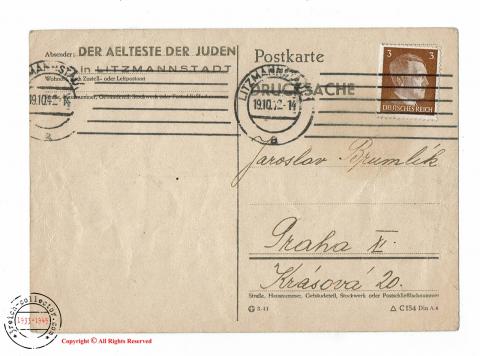 Absender: DER AELTESTE DER JUDEN
in LITZMANNSTADT
Wohnort, auch Zustell- oder Leitpostamt
Hausnummer, Gebäudeteil, Stockwerk oder Postschließfachnummer
LITZMANNSTADT
19.10.42.-14
a
Postkarte
DRUCKSACHE
LITZMANNSTADT
19.10.42.-14
a
3 3
DEUTSCHES REICH
Jaroslav Brumlík
Praha XI.
Krásová 20.
Straße, Hausnummer, Gebäudeteil, Stockwerk oder Postschließfachnummer
C 154 Din A 6
ireich-collector.com
1933-1945
Copyright © All Rights Reserved